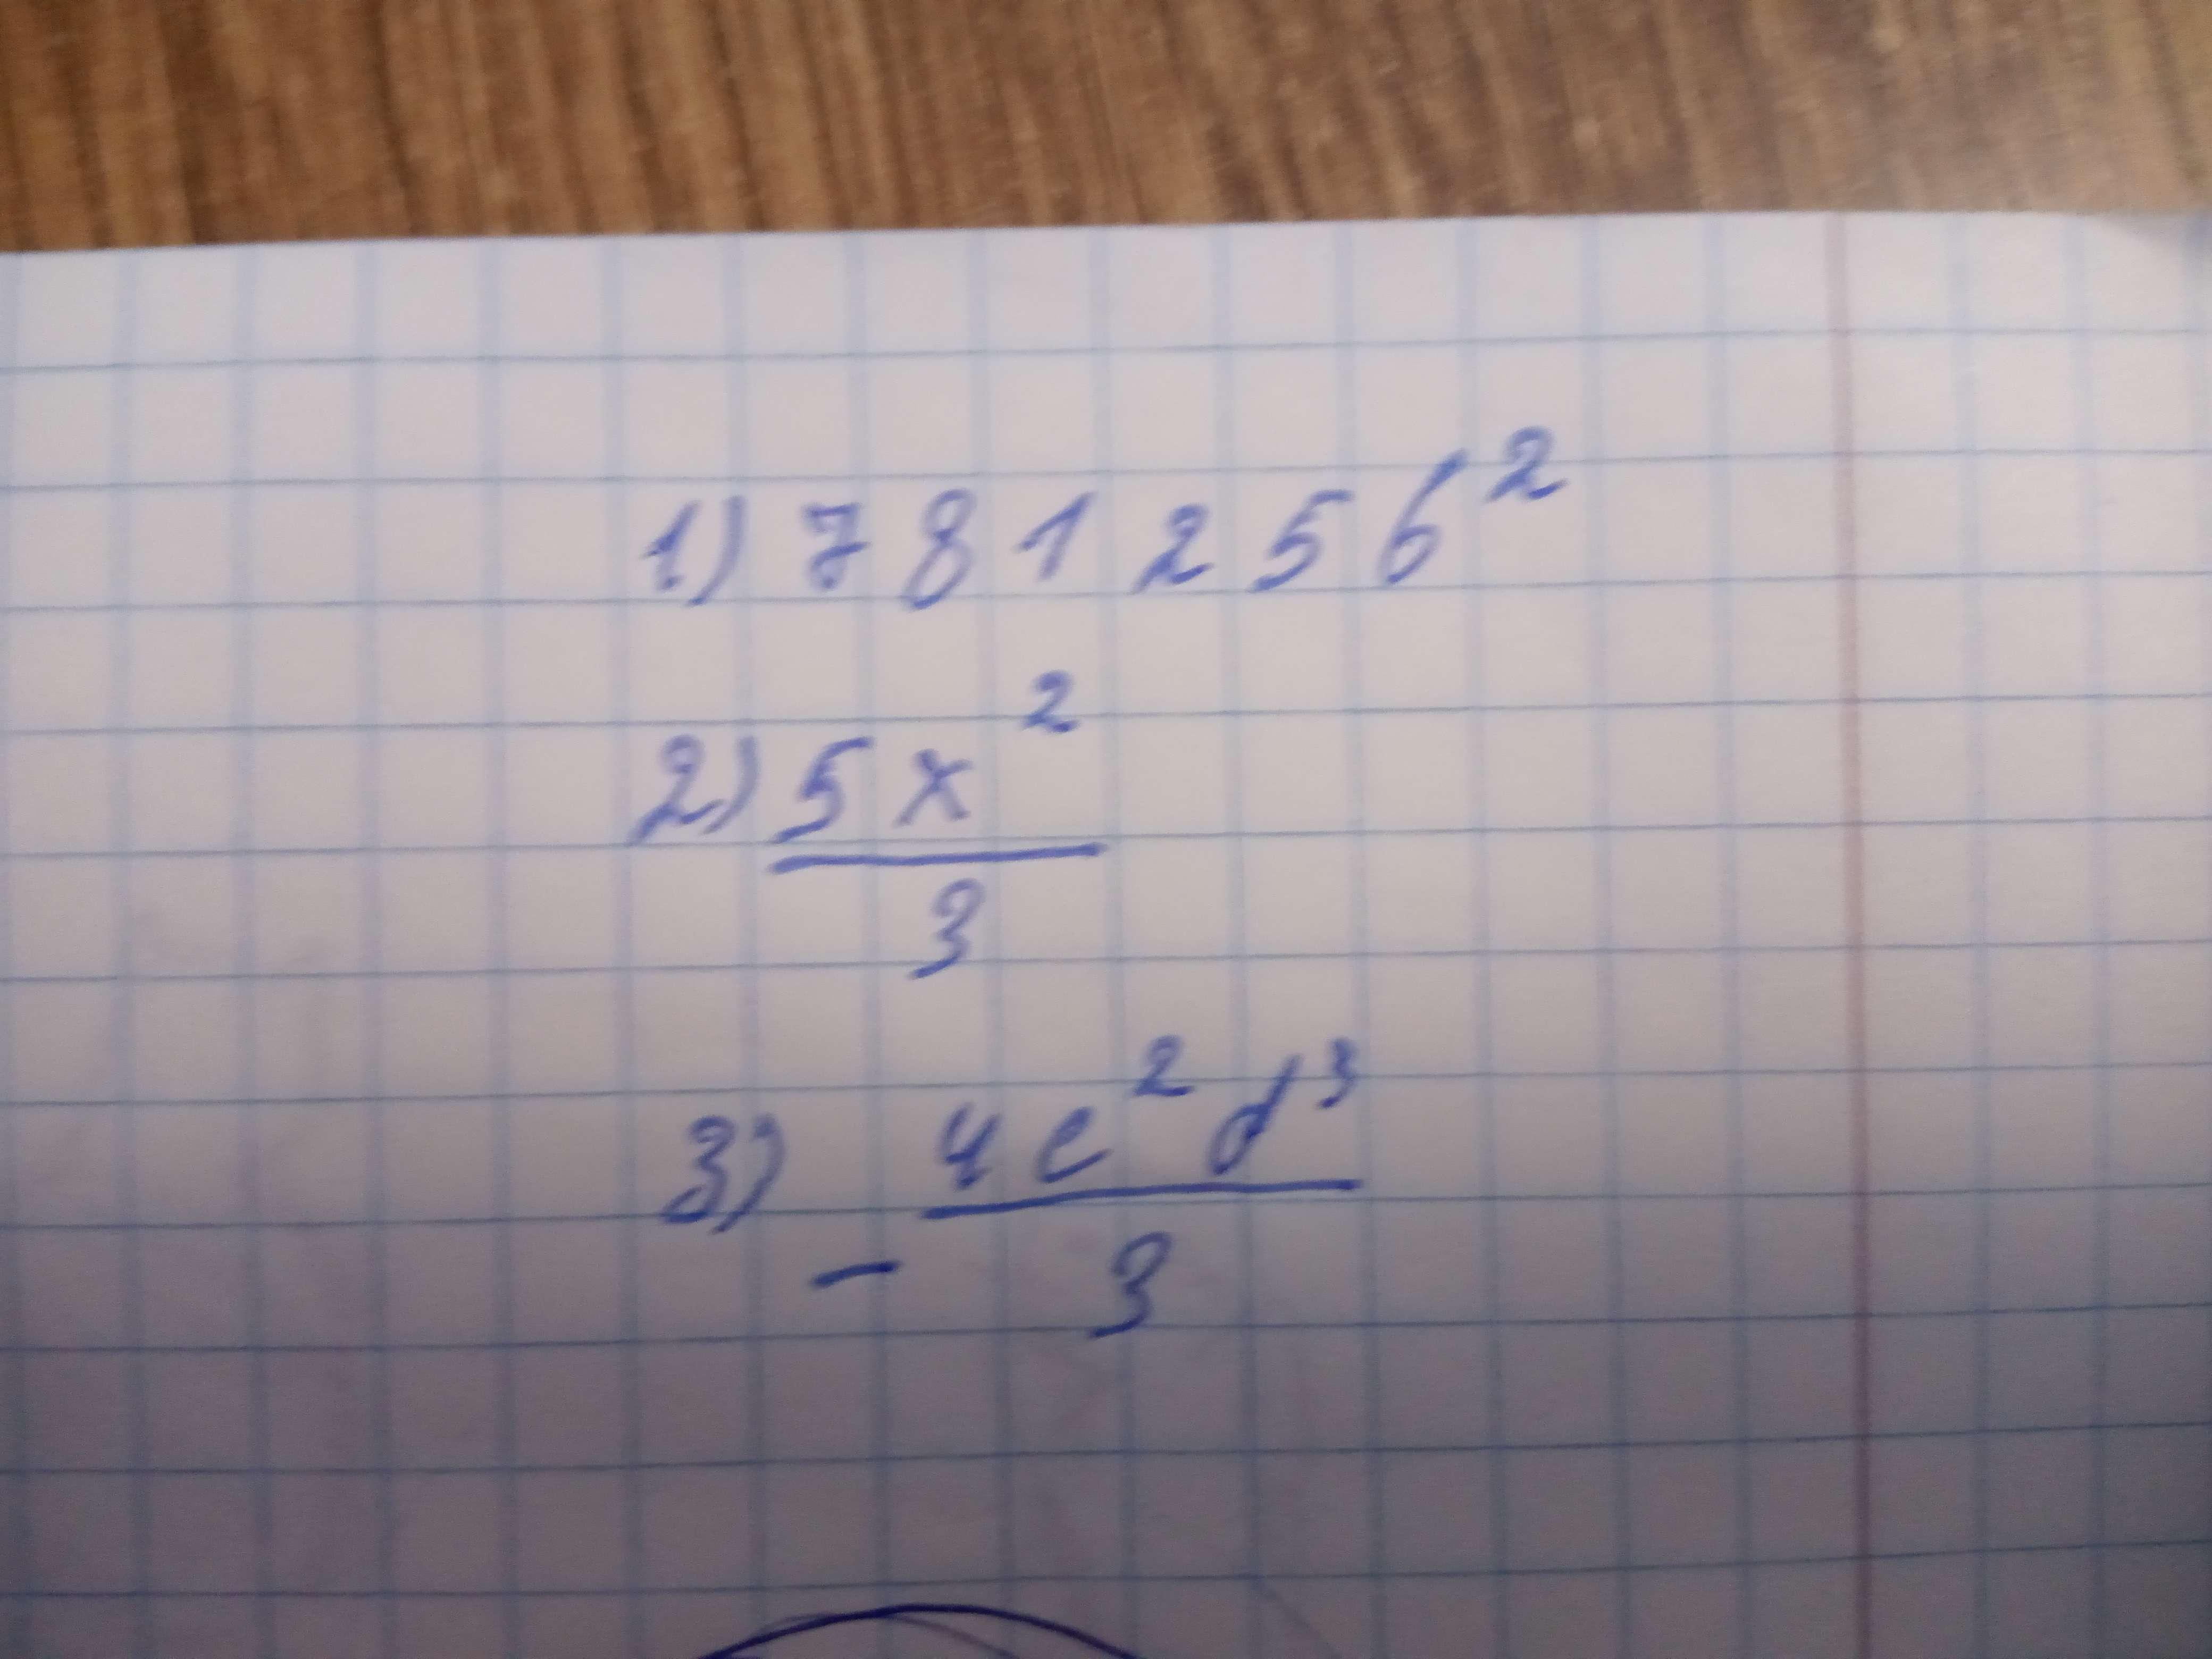 1) 781256²
2) 5x²
3
3) - 4c²d³
3